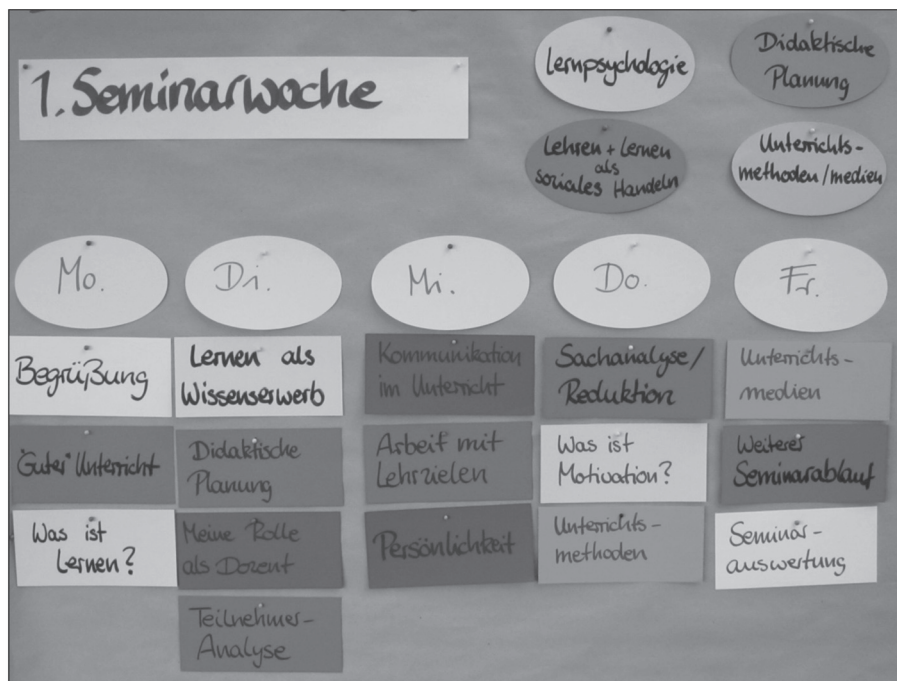 1. Seminarwoche
Lernpsychologie
Didaktische
Planung
Lehren + Lernen
als
soziales Handeln
Unterrichts-
methoden/medien
Mo.
Di.
Mi.
Do.
Fr.
Begrüßung
"Guter" Unterricht
Was ist
Lernen?
Lernen als
Wissenserwerb
Didaktische
Planung
Meine Rolle
als Dozent
Teilnehmer-
Analyse
Kommunikation
im Unterricht
Arbeit mit
Lehrzielen
Persönlichkeit
Sachanalyse/
Reduktion
Was ist
Motivation?
Unterrichts-
methoden
Unterrichts-
medien
Weiterer
Seminarablauf
Seminar-
auswertung